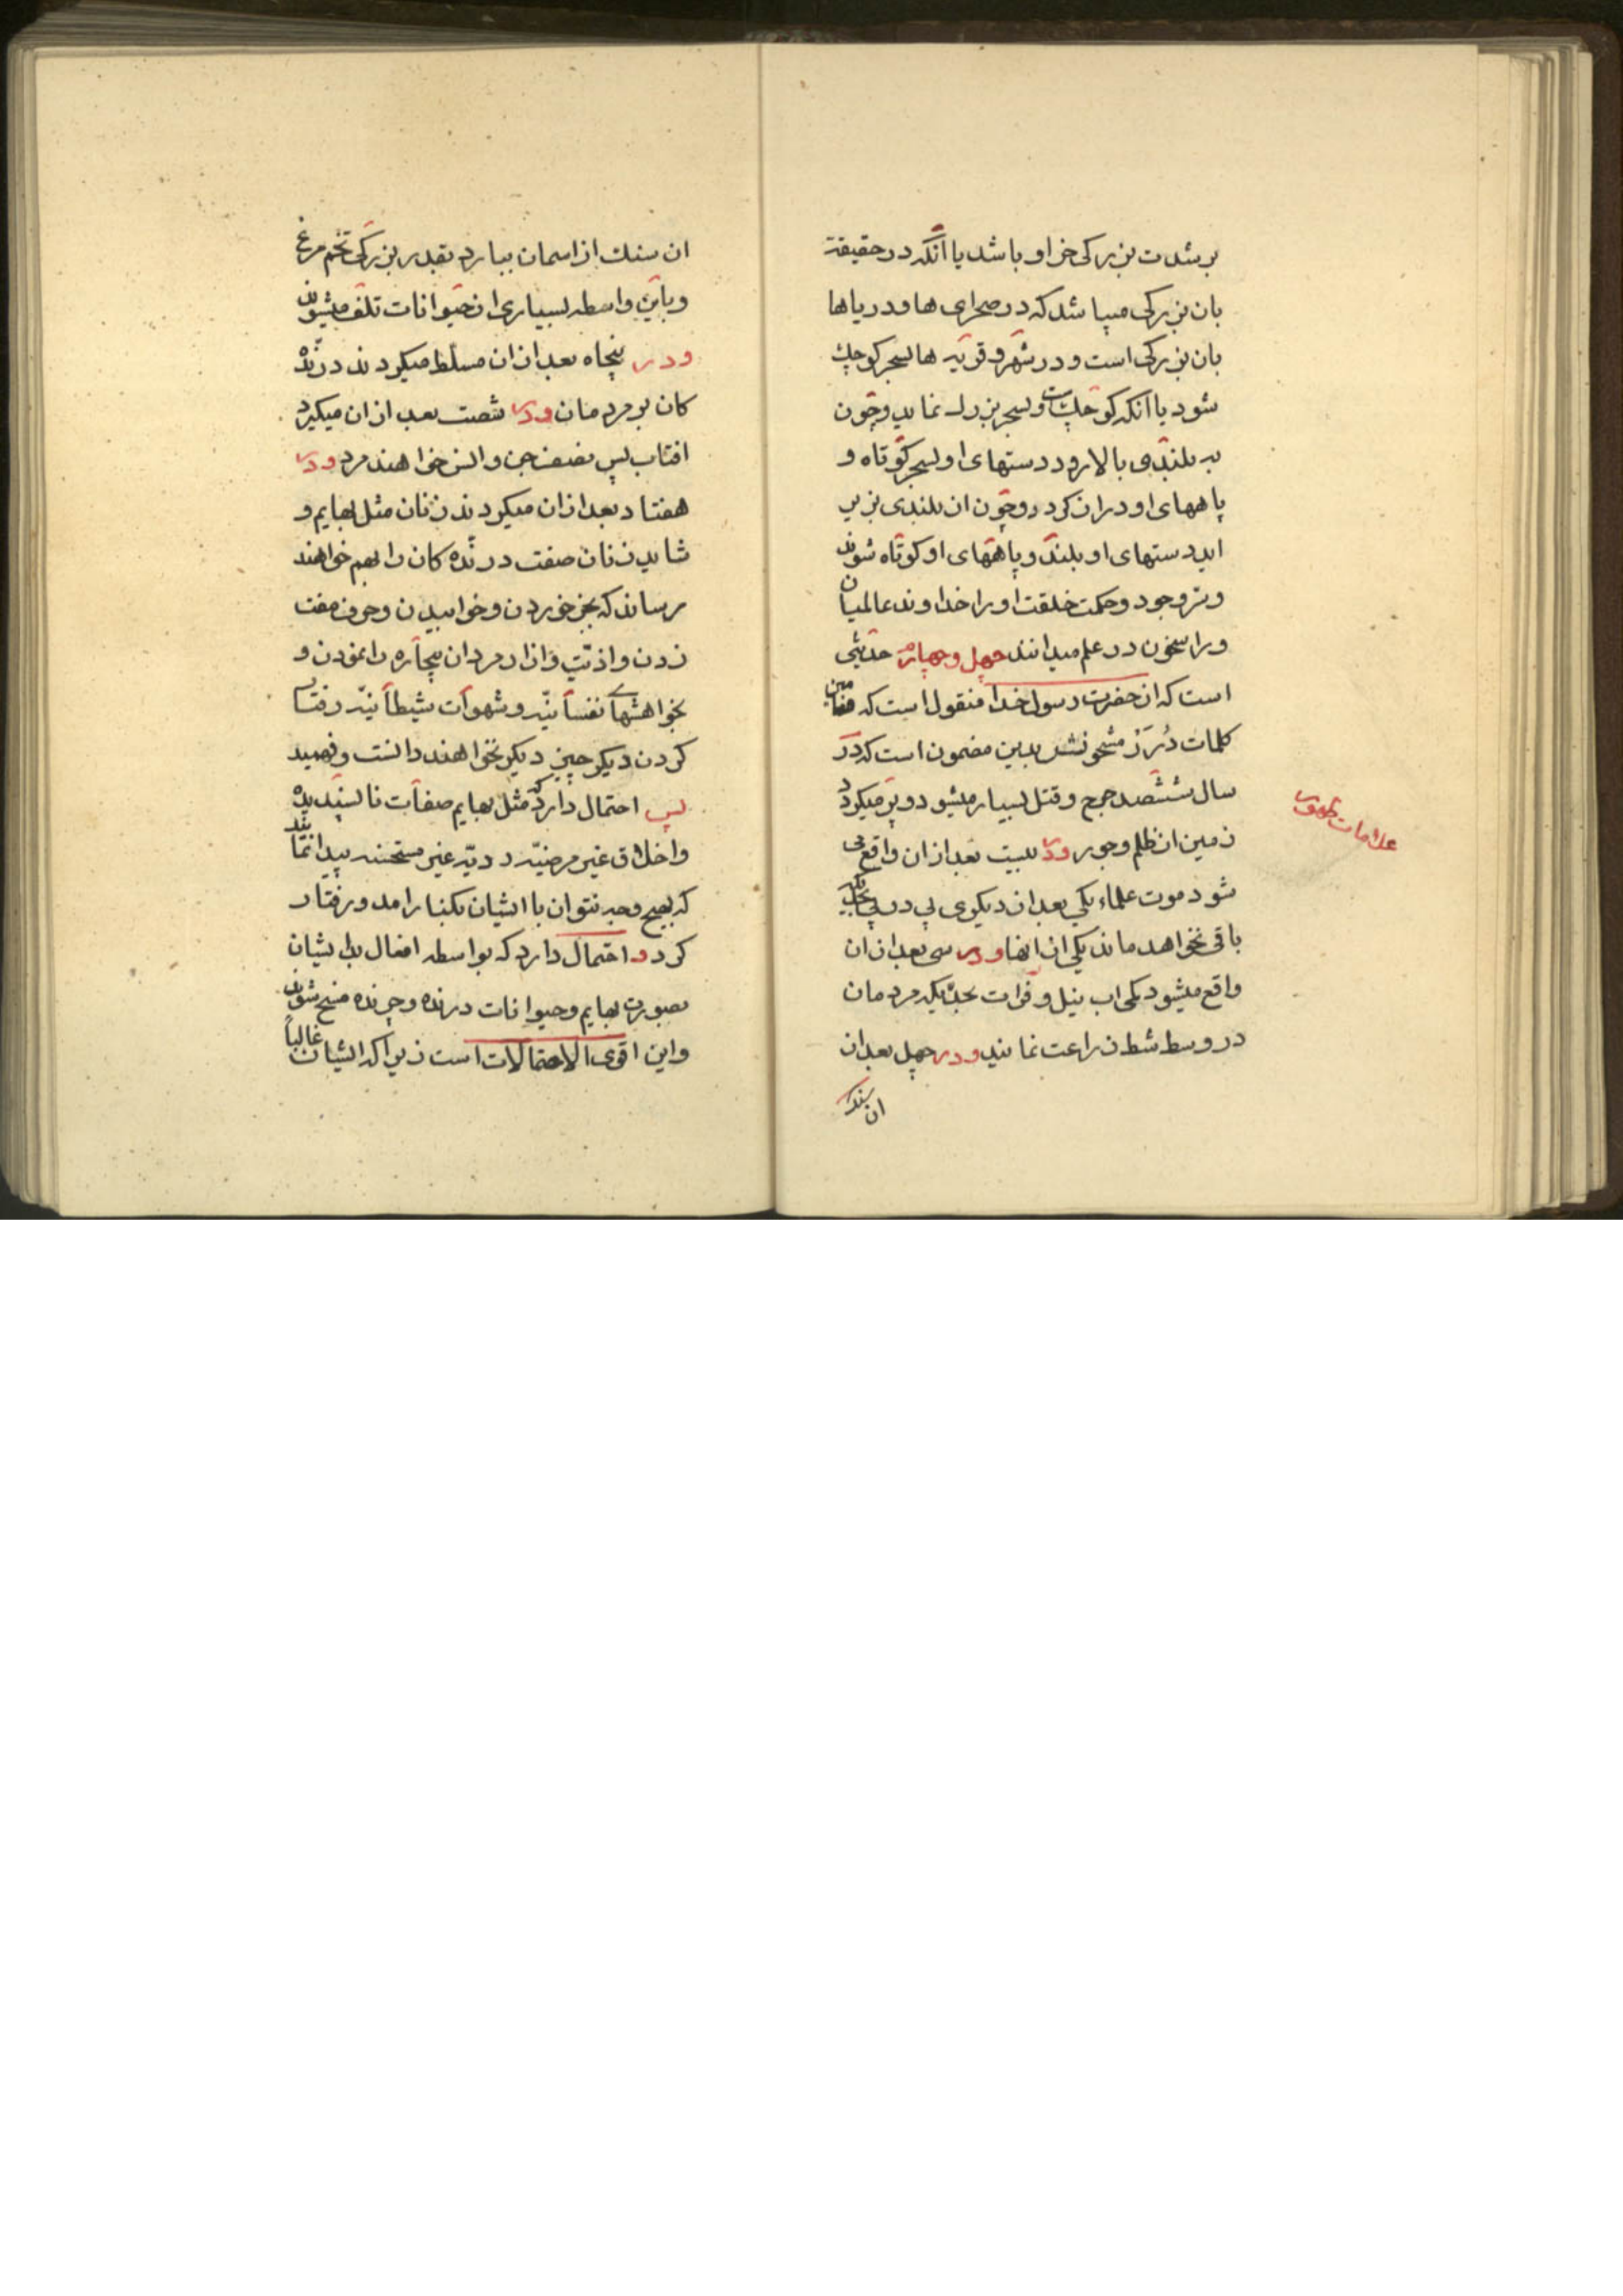 بر شدت بزرکی خر او باشد یا انکه در حقیقة
بان بزرکی میباشد که در صحرای ها و دریاها
بان بزرکی است و در شهر و قریه ها بسحر کوچك
شود یا انکه کوچك است و بسحر بزرك نماید و چون
به بلندی بالا رود دستهای او بسحر کوتاه و
پاههای او دراز کردد و چون از بلندی بزیر
اید دستهای او بلند و پاههای او کوتاه شوند
و سر وجود و حکمت خلقت او را خداوند عالمیان
و راسخون در علم میدانند چهل و چهارم حدیثی
است که از حضرت رسول خدا منقول است که مضامین
کلمات دُرَر مشحونش بدین مضمون است که در
سال ششصد حج و قتل بسیار میشود و پر میکردد
زمین از ظلم و جور ودر بیست بعد از ان واقع می
شود موت علماء یکی بعد از دیکری پی در پی بحدیکه
باقی نخواهد ماند یکی از انها ودر سی بعد از ان
واقع میشود کمی اب نیل و فرات بحدّیکه مردمان
در وسط شط زراعت نمایند ودر چهل بعد از
ان سنك
علامات ظهور
ان سنك از اسمان ببارد بقدر بزرکی تخم مرغ
و باین واسطه بسیاری از حیوانات تلف میشوند
ودر پنجاه بعد از ان مسلط میکردند درنّده
کان بر مردمان ودر شصت بعد از ان میکیرد
افتاب پس نصف جن و انس خواهند مرد ودر
هفتاد بعد از ان میکردند زنان مثل بهایم و
شاید زنان صفت درنده کان را بهم خواهند
رساند که بجز خوردن و خوابیدن و حرف مفت
زدن و اذیّت و ازار مردان بیچاره را نمودن و
بخواهشهای نفسانیّه و شهوات شیطانیّه رفتار
کردن دیکر چیز دیکر نخواهند دانست و فهمید
پس احتمال دارد که مثل بهایم صفات ناپسندیده
و اخلاق غیر مرضیّه ردیّه غیر مستحسنه پیدا نمایند
که بهیچ وجه نتوان با ایشان بکنار امد و رفتار
کرد و احتمال دارد که بواسطه افعال بد ایشان
بصورت بهایم و حیوانات درنده و چرنده مسخ شوند
و این اقوی الاحتمالات است زیرا که ایشان غالباً